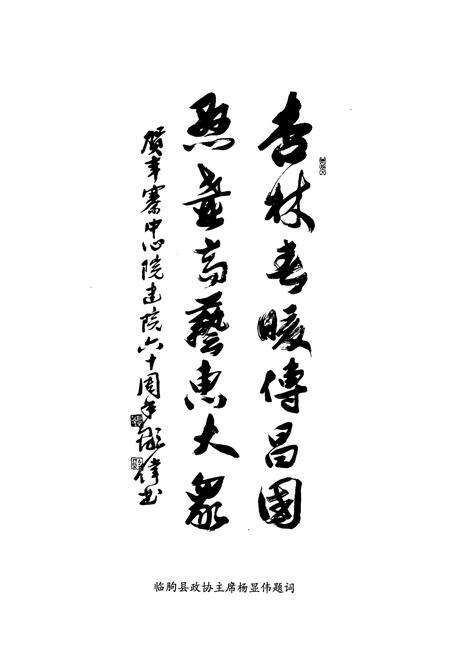 杏林春暖傳昌國
懸壺高藝惠大眾
賀辛寨中心院建院六十周年顯偉书
临朐县政协主席杨显伟题词